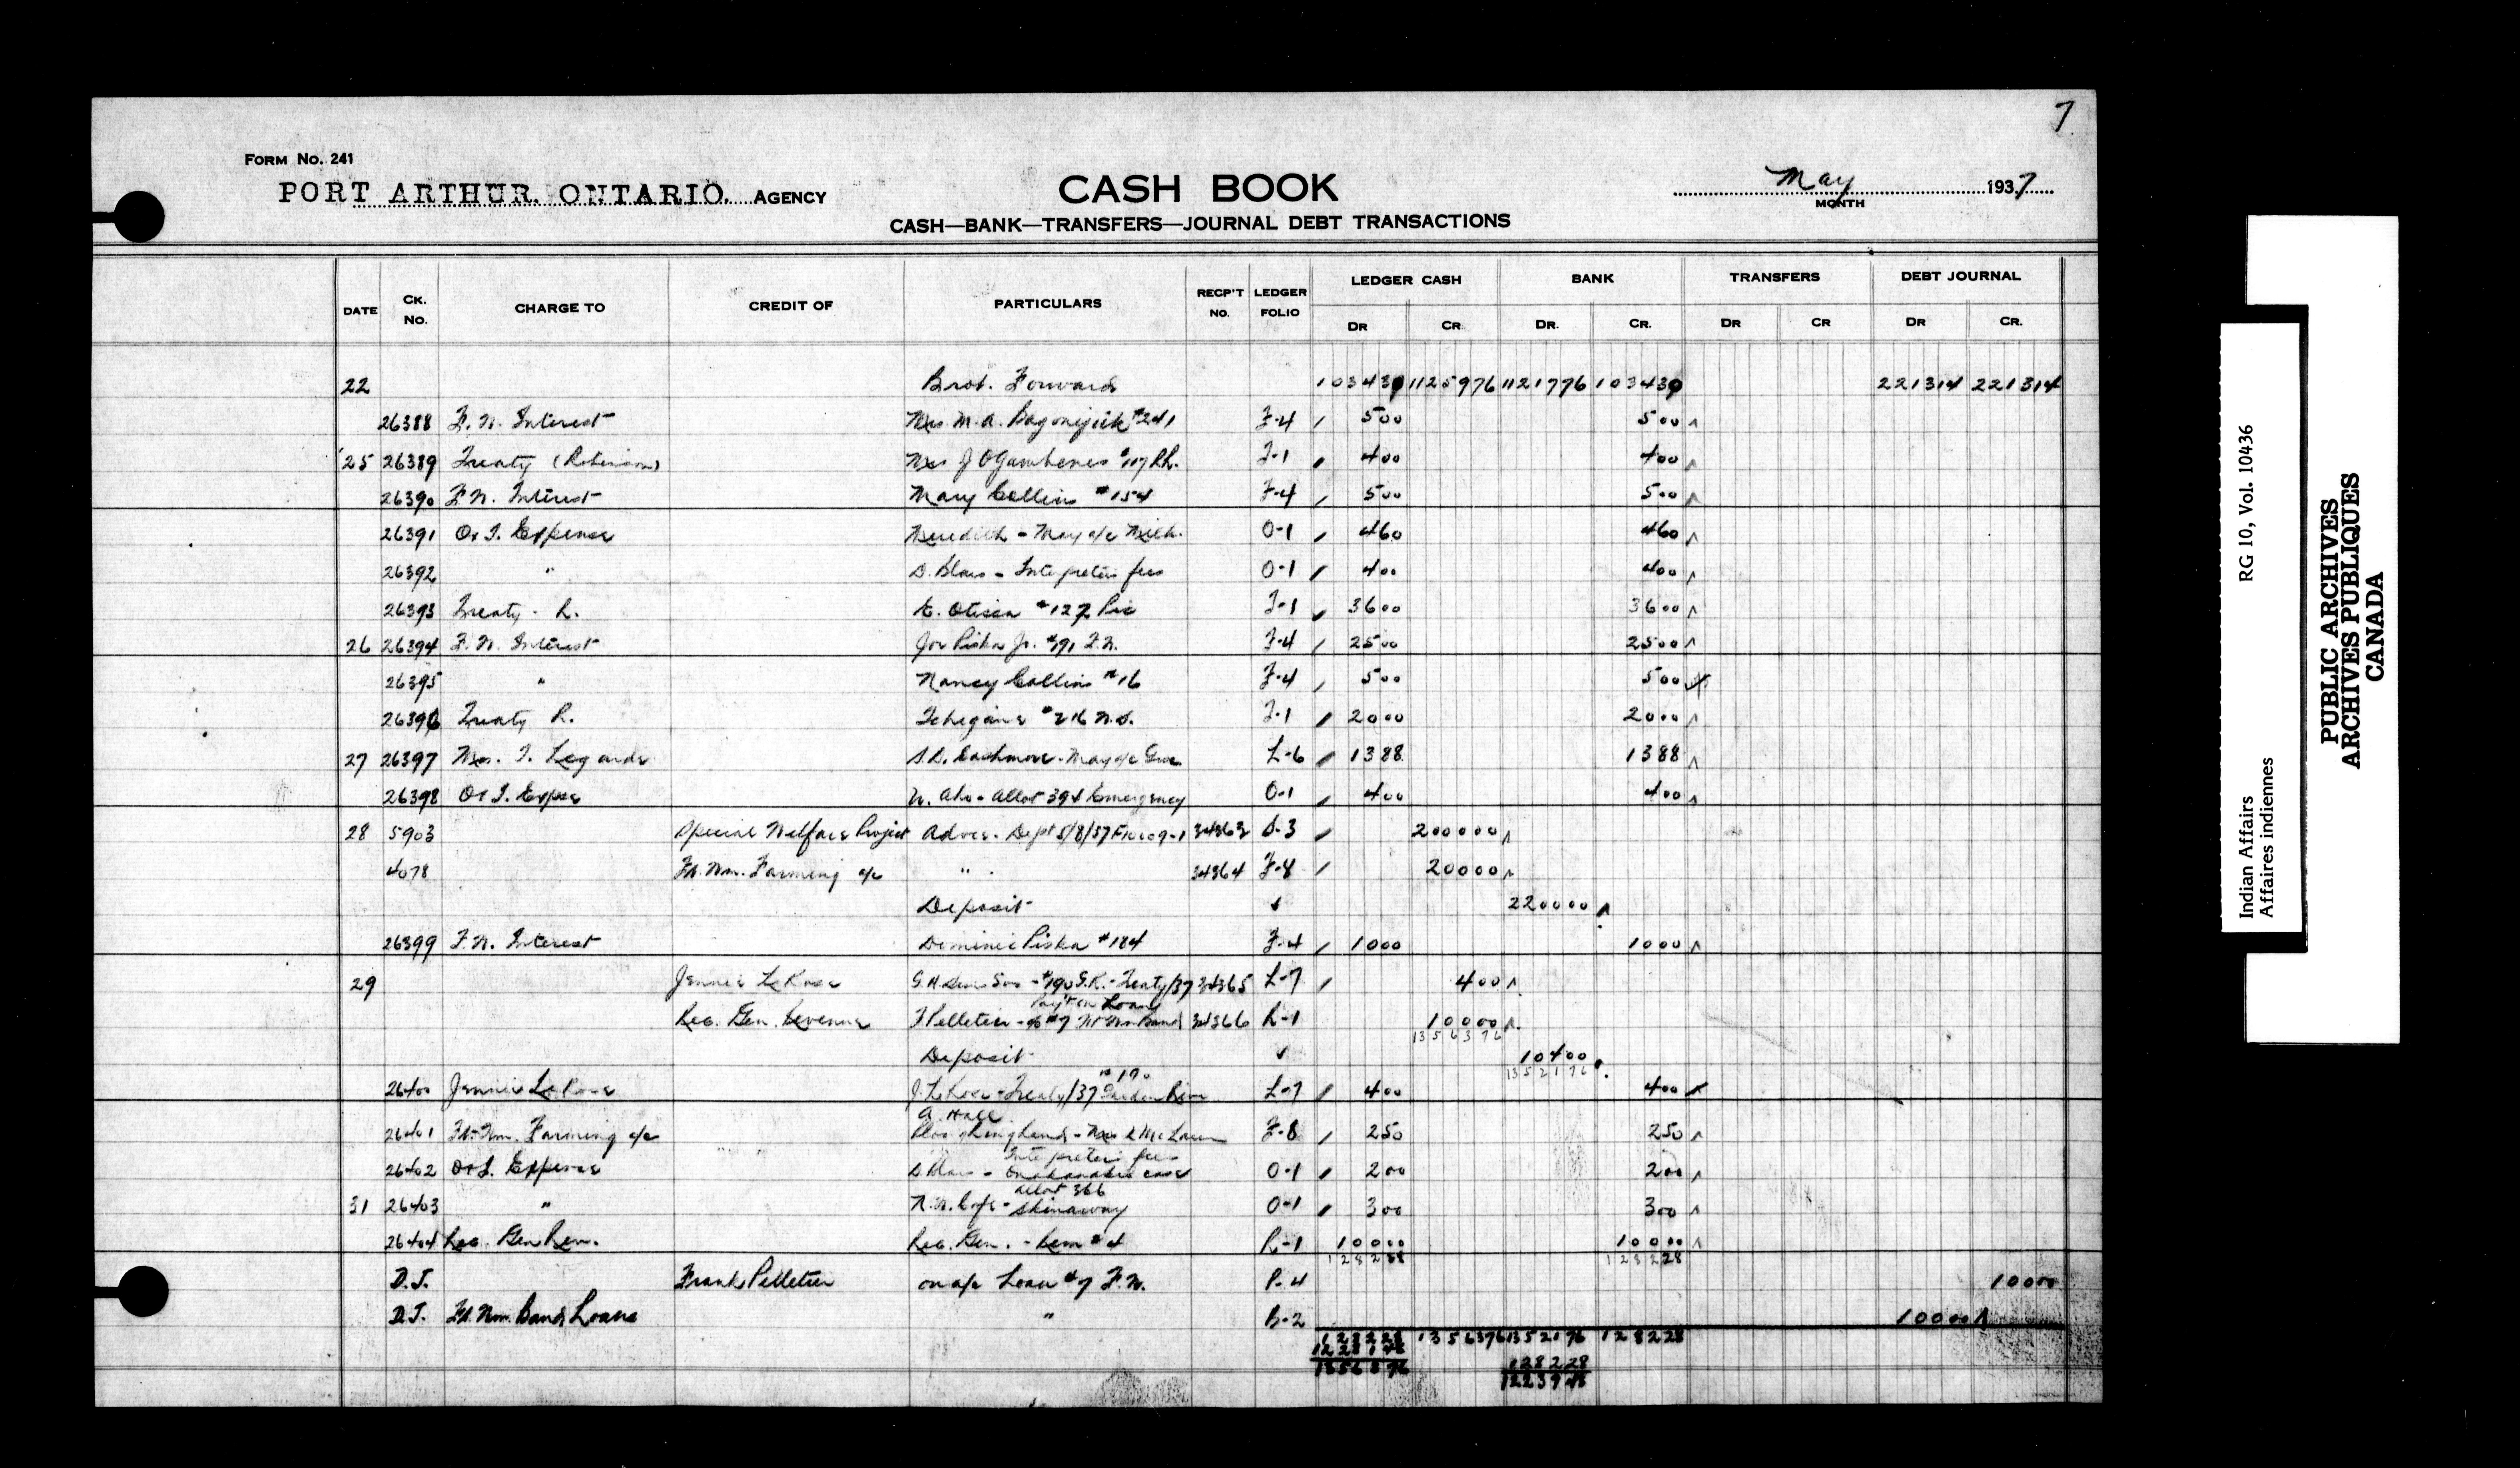 7
FORM No. 241
PORT ARTHUR. ONTARIO. AGENCY
CASH BOOK
May 1937
MONTH
CASH—BANK—TRANSFERS—JOURNAL DEBT TRANSACTIONS
DATE CK. No. CHARGE TO CREDIT OF PARTICULARS RECP'T NO. LEDGER FOLIO LEDGER CASH BANK TRANSFERS DEBT JOURNAL
DR CR DR. CR. DR CR DR CR.
22 Brot. Forward 103430 1125976 1121776 103430 221314 221314
26388 F.W. Interest Mrs M.A. #241 F-4 500 500
25 26389 Treaty (Robinson) Mrs J #117 R.R. T-1 400 400
26390 F.W. Interest Mary Collins #154 F-4 500 500
26391 O+I. Expense Meredith - May a/c O-1 460 460
26392 " D. Blais - Interpreters fees O-1 400 400
26393 Treaty - R. #127 Pic T-1 3600 3600
26 26394 F.W. Interest Joe Piska Jr. F.W. F-4 2500 2500
26395 " Nancy Collins #16 F-4 500 500
26396 Treaty R. #216 T-1 2000 2000
27 26397 Mrs. T. Legarde Cashmore - May a/c L-6 1388 1388
26398 O+I. Expse - allot 394 Emergency O-1 400 400
28 5903 Special Welfare Project Advce. Dept 5/8/37 34363 S-3 200000
4078 Ft. Wm. Farming a/c " 34364 F-8 20000
Deposit ✓ 220000
26399 F.W. Interest Dominic Piska #184 F-4 1000 1000
29 Jennie LeRose #190 G.R. - Treaty/37 34365 L-7 400
Pay't on Loan
Rec. Gen. Revenue F Pelletier - #7 Ft Wm Band 34366 R-1 10000
1356376
Deposit ✓ 10400
1352176
190
26400 Jennie LeRose J. LeRose - Treaty/37 Garden River L-7 400 400
A. Hall
26401 Ft. Wm. Farming a/c Ploughing land - Mrs McLaren F-8 250 250
Interpreters fees
26402 O+I. Expense D. Blais - case O-1 200 200
allot 366
31 26403 " - Skinaway O-1 300 300
26404 Rec. Gen Rev. Rec. Gen. - Rem #4 R-1 10000 10000
128228 128228
D.J. Frank Pelletier on a/c Loan #7 F.W. P-4 10000
D.J. Ft. Wm. Band Loans " B-2 10000
128228 1356376 1352176 128228
1228148 128228
1356376 1223948
Indian Affairs RG 10, Vol. 10436
Affaires indiennes
PUBLIC ARCHIVES
ARCHIVES PUBLIQUES
CANADA